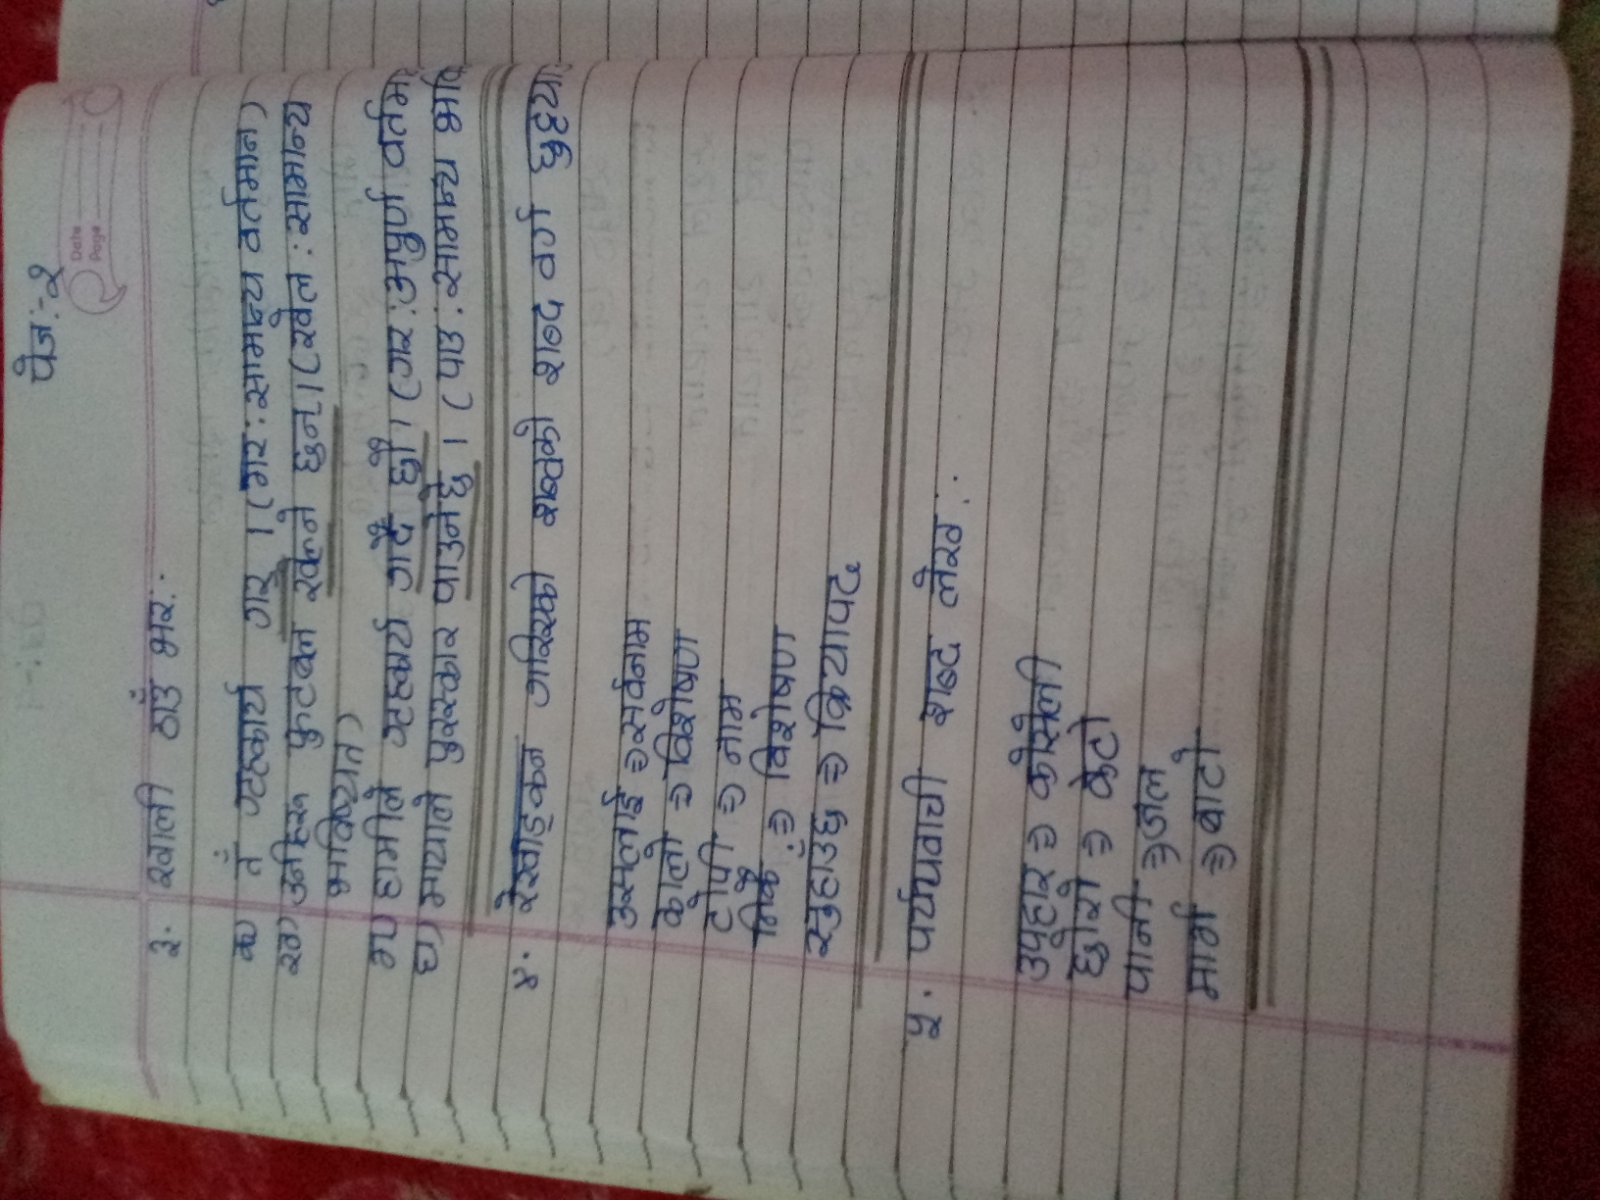 पेज:-२
Date
Page
३. खाली ठाउँ भर:
क) तँ गृहकार्य गर् । (गर : सामन्य वर्तमान)
ख) उनीहरू फुटबल खेल्ने छन् । (खेल : सामान्य
भविष्यत)
ग) हामीले गृहकार्य गर्दै छौँ । (गर : अपुर्ण वर्तमा
घ) मायाले पुरस्कार पाउनेछे । (पाउ : सामन्य भवि
४. रेखाङ्कन गरिएको शब्दको शब्द वर्ग छुट्या
उसलाई ⇒ सर्वनाम
कालो ⇒ विशेषण
टोपी ⇒ नाम
निकै ⇒ विशेषण
सुहाउँछ ⇒ क्रियापद
५. पर्यायवाची शब्द लेख :
उपहार ⇒ कोसेली
छोरो ⇒ केटो
पानी ⇒ जल
मार्ग ⇒ बाटो